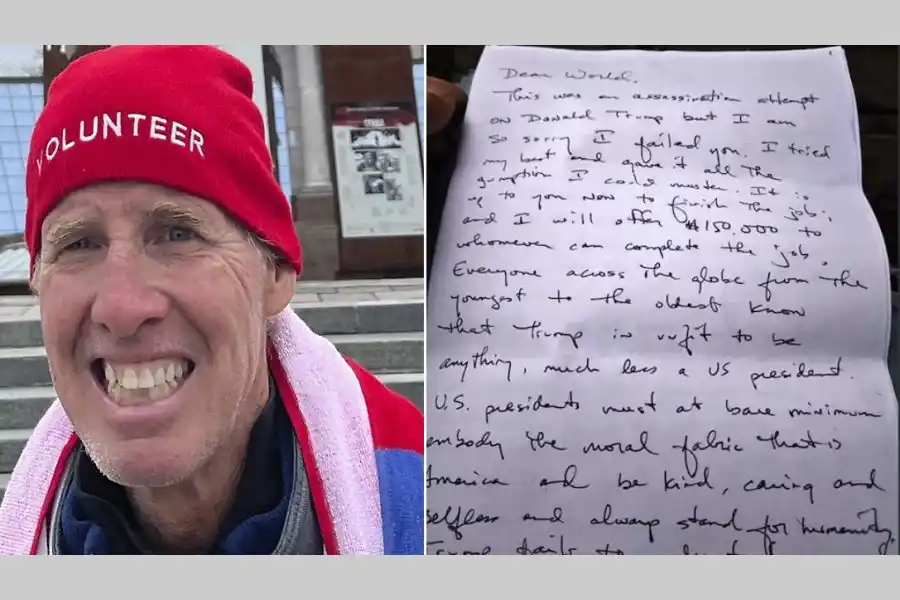 VOLUNTEER
Dear World.
This was an assassination attempt
on Donald Trump but I am
so sorry I failed you. I tried
my best and gave it all the
gumption I could muster. It is
up to you now to finish the job;
and I will offer $150,000 to
whomever can complete the job.
Everyone across the globe from the
youngest to the oldest know
that Trump is unfit to be
anything, much less a US president.
U.S. presidents must at bare minimum
embody the moral fabric that is
America and be kind, caring and
selfless and always stand for humanity.
Trump fails to